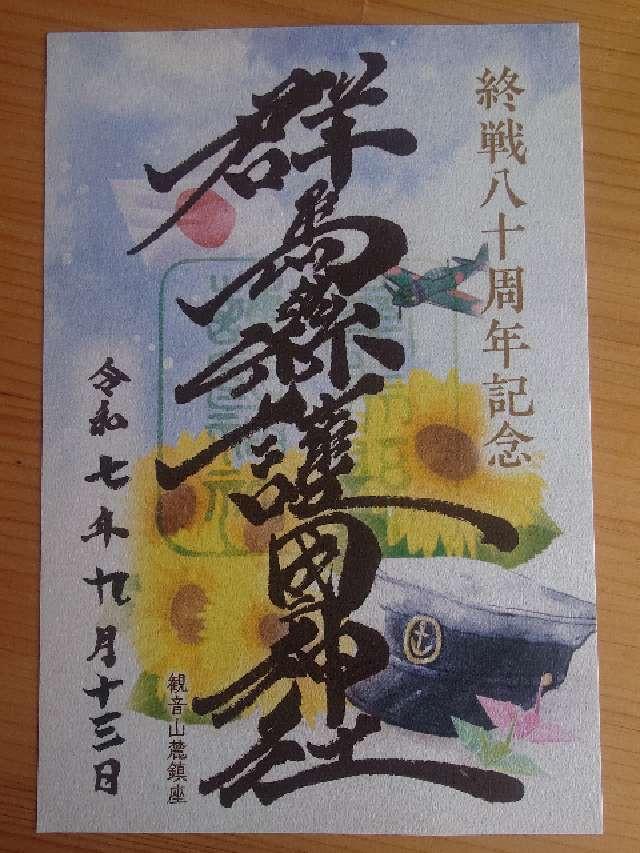 終戦八十周年記念
群馬縣護國神社
観音山麓鎮座
令和七年九月十三日